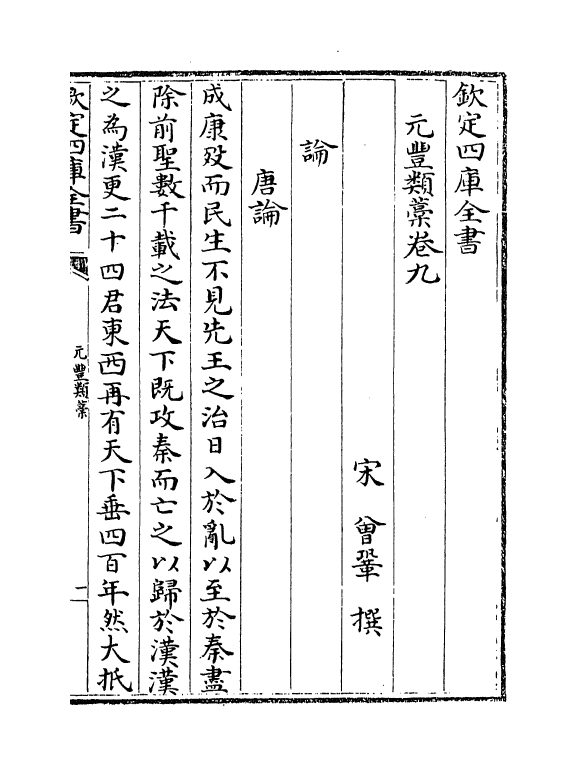 欽定四庫全書
元豐類藁卷九
宋 曾鞏 撰
論
唐論
成康歿而民生不見先王之治日入於亂以至於秦盡
除前聖數千載之法天下既攻秦而亡之以歸於漢漢
之為漢更二十四君東西再有天下垂四百年然大抵
欽定四庫全書
元豐類藁